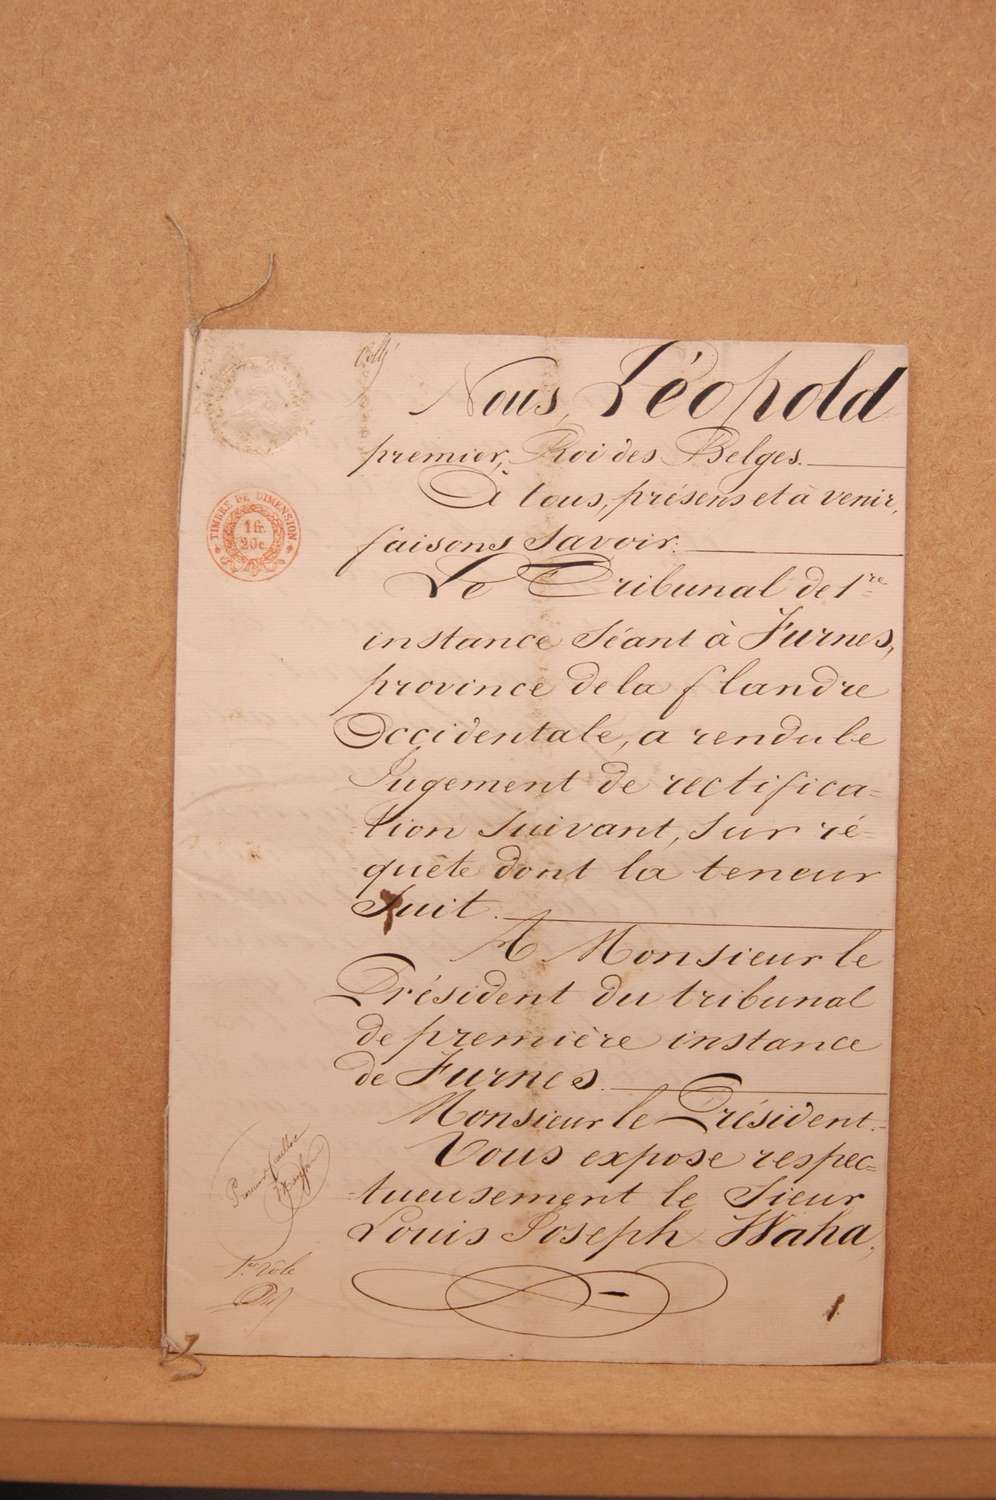 Nous, Léopold
premier, Roi des Belges.
À tous, présens et à venir,
faisons savoir:
TIMBRE DE DIMENSION
1 fr.
20c.
Le Tribunal de 1re
instance séant à Furnes,
province de la flandre
Occidentale, a rendu le
Jugement de rectifica=
tion suivant, sur ré=
quête dont la teneur
Suit.
A Monsieur le
Président du tribunal
de première instance
de Furnes.
Monsieur le Président.
Vous expose respec=
tueusement le Sieur
Louis Joseph Waha,
1re rôle
1.